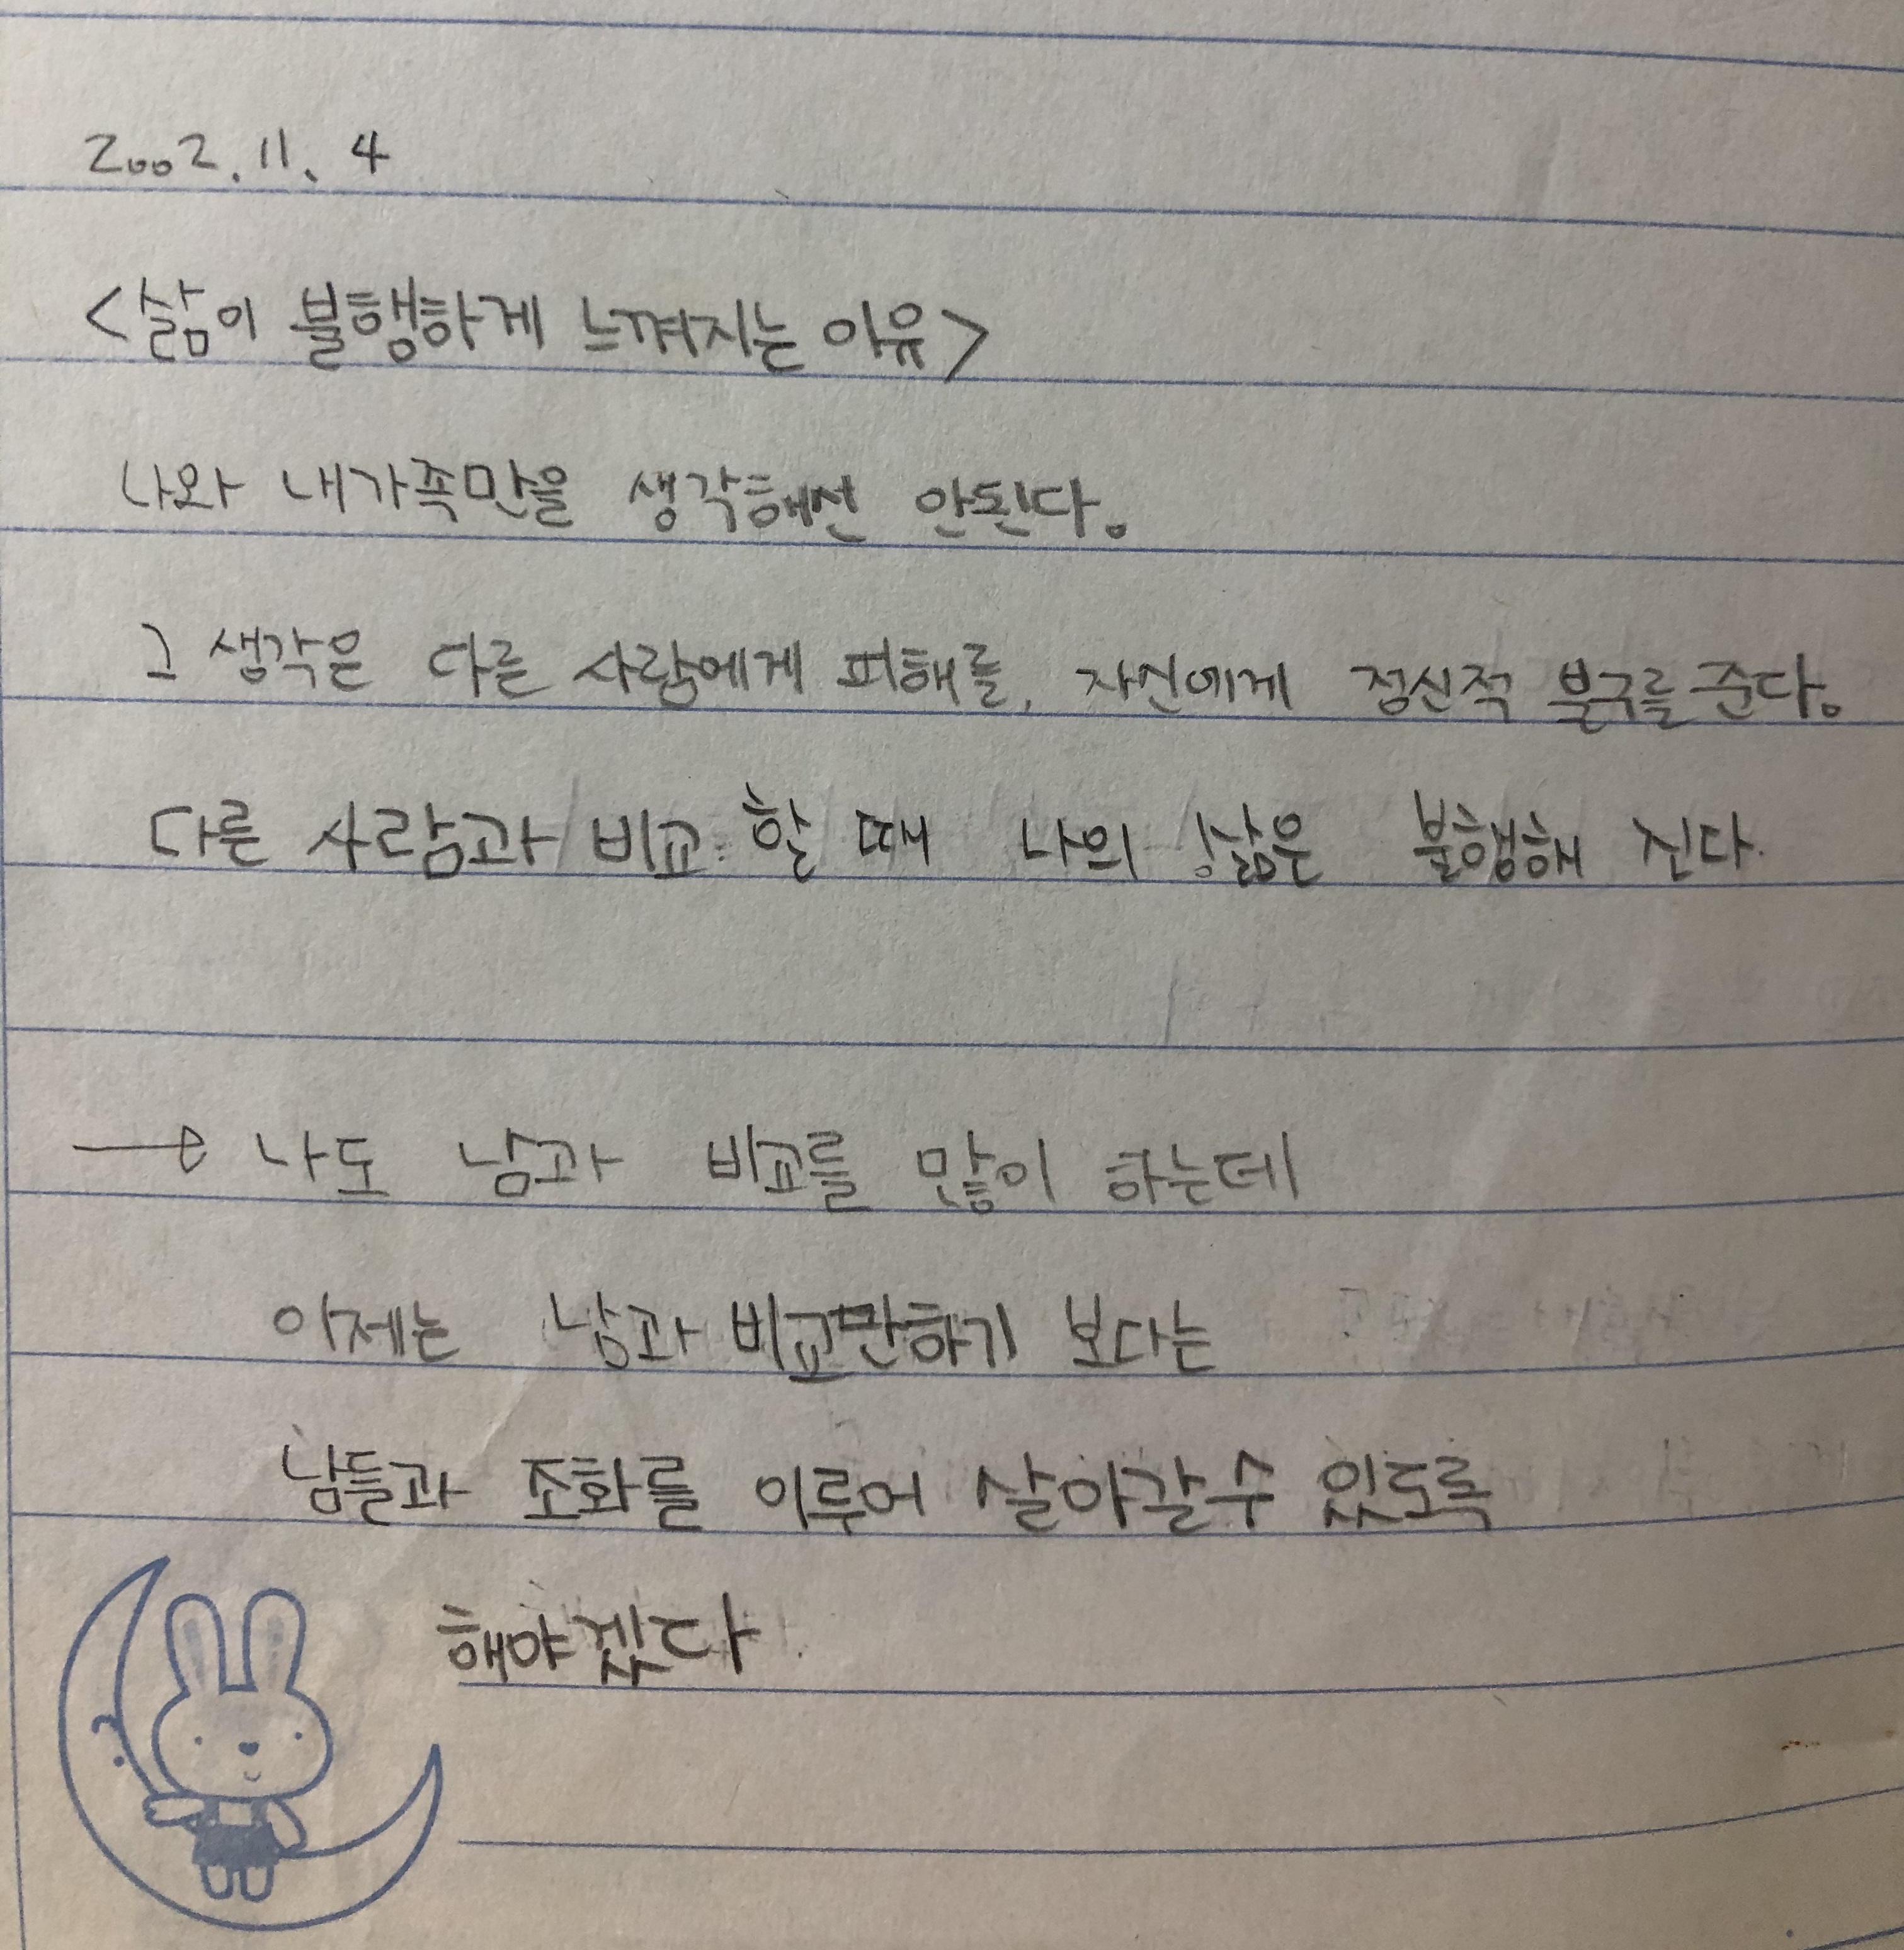 2002. 11. 4
<삶이 불행하게 느껴지는 이유>
나와 내가족만을 생각해선 안된다.
그 생각은 다른 사람에게 피해를, 자신에게 정신적 불구를 준다.
다른 사람과 비교 할 때 나의 삶은 불행해 진다.
→ 나도 남과 비교를 많이 하는데
이제는 남과 비교만하기 보다는
남들과 조화를 이루어 살아갈 수 있도록
해야겠다.